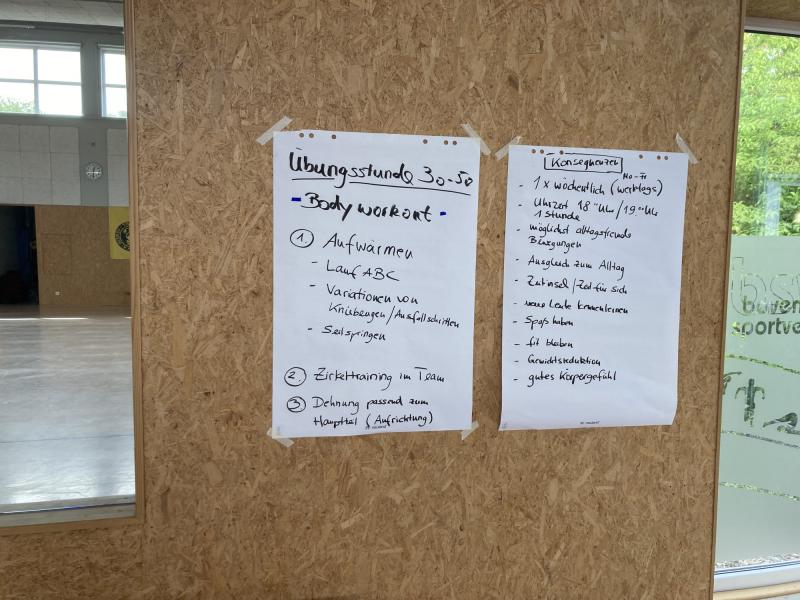 Übungsstunde 30-50
- Body workout -
1. Aufwärmen
- Lauf ABC
- Variationen von
Kniebeugen/Ausfallschritten
- Seilspringen
2. Zirkeltraining im Team
3 Dehnung passend zum
Hauptteil (Aufrichtung)
Konsequenzen
Mo-Fr
- 1x wöchentlich (werktags)
- Uhrzeit 18 Uhr/19 Uhr
1 Stunde
- möglichst alltagsfremde
Bewegungen
- Ausgleich zum Alltag
- Zeitinsel/Zeit für sich
- neue Leute kennenlernen
- Spaß haben
- fit bleiben
- Gewichtsreduktion
- gutes Körpergefühl
bayer
sportve